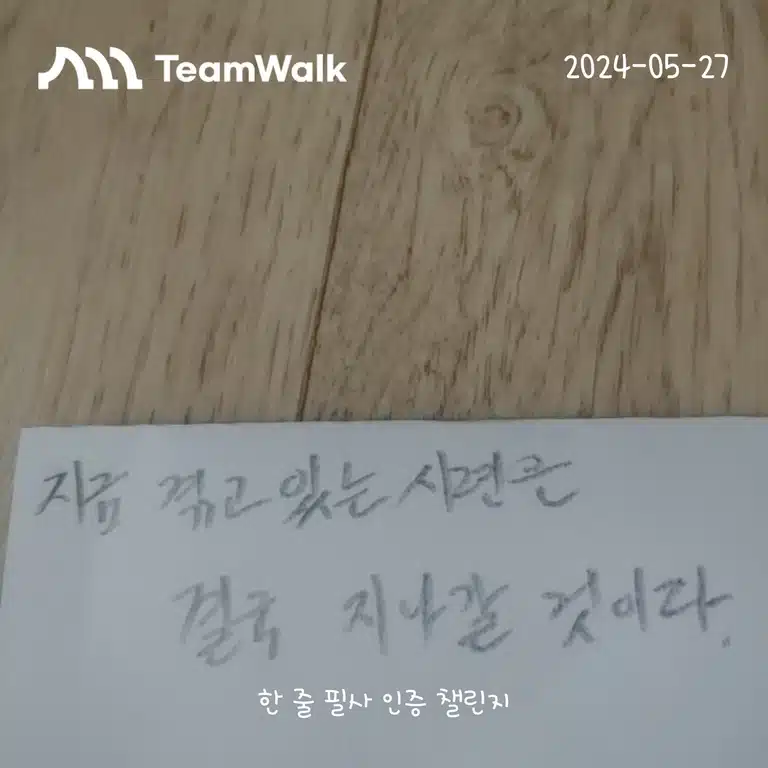 TeamWalk
2024-05-27
지금 겪고 있는 시련은
결국 지나갈 것이다.
한 줄 필사 인증 챌린지